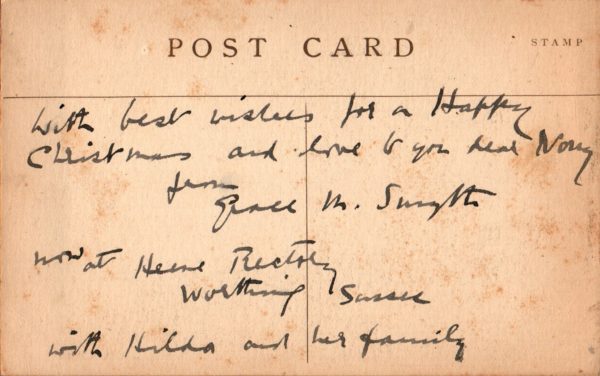 POST CARD
STAMP
With best wishes for a Happy
Christmas and love to you dear Nony
from
Grace M. Smyth
now at Heene Rectory
Worthing Sussex
with Hilda and her family